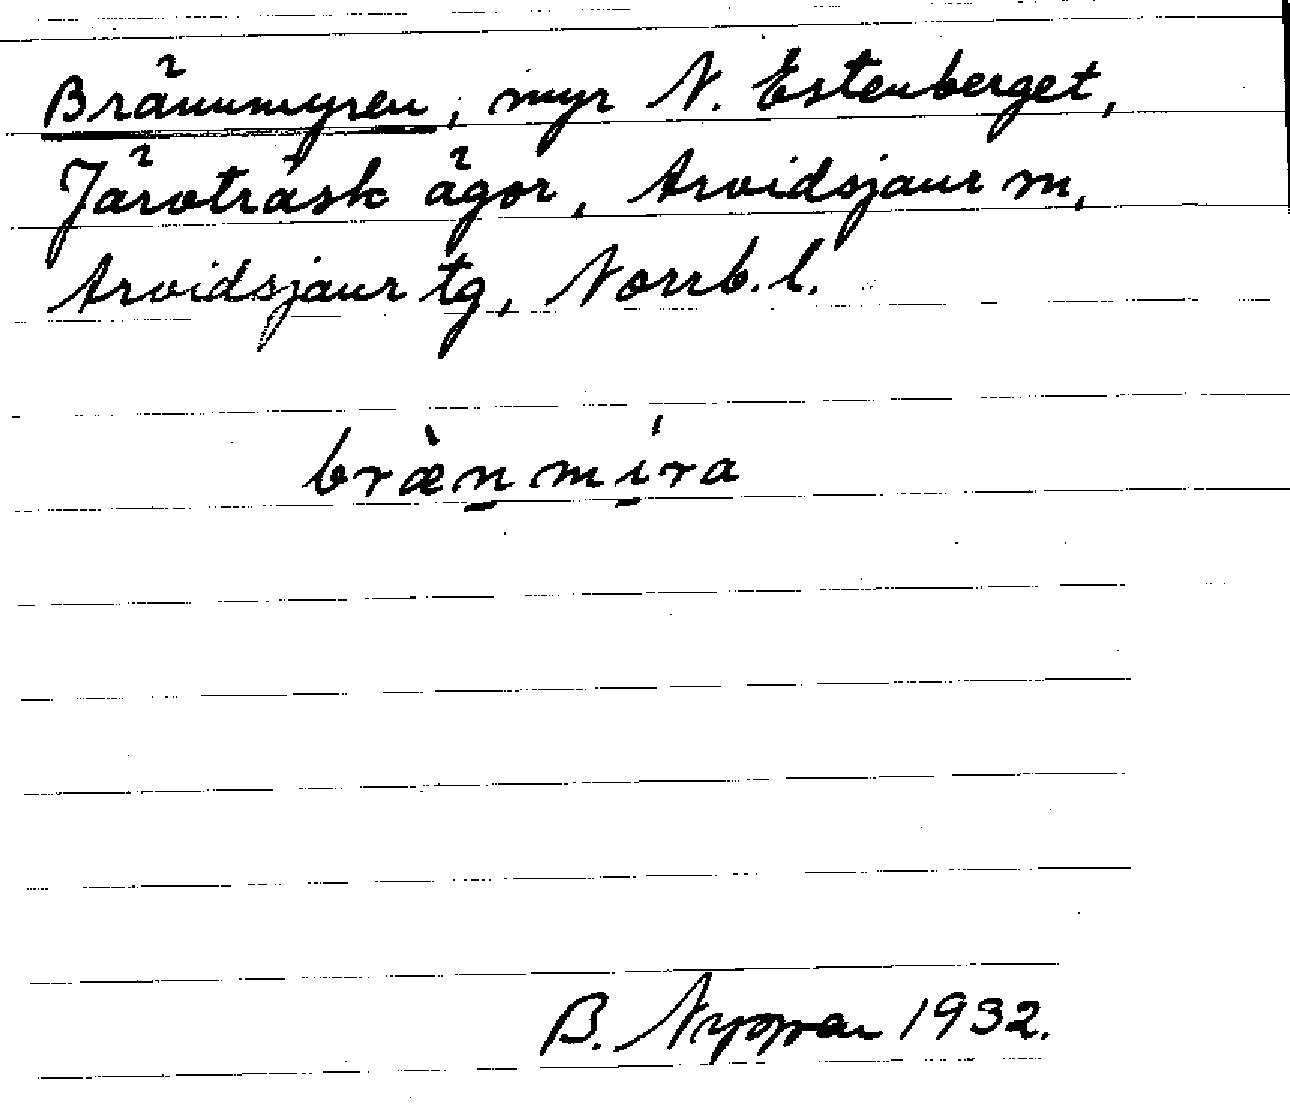 Brännmyren, myr N. Estenberget,
Järvträsk ägor, Arvidsjaur sn,
Arvidsjaur tg, Norrb. l.
bræ̀nmı̇́ra
B. Nyman 1932.